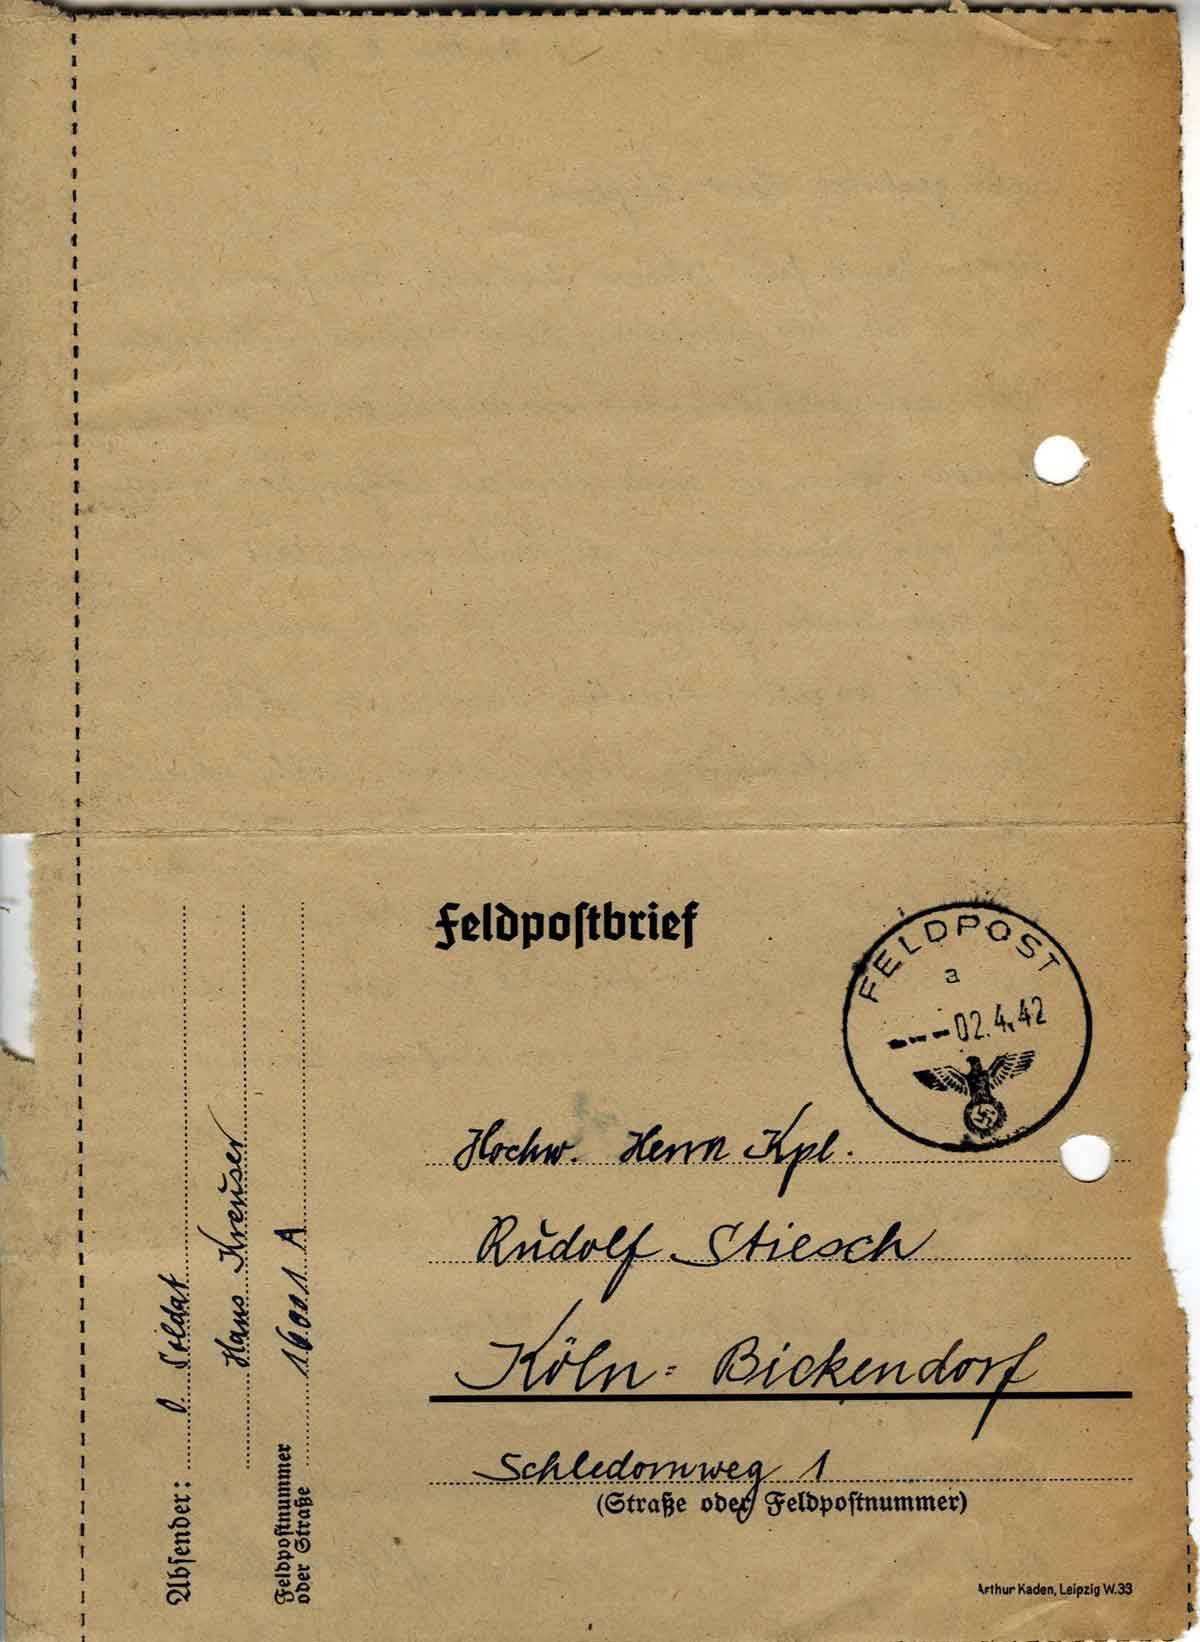 Feldpostbrief
FELDPOST
a
---02.4.42
Hochw. Herrn Kpl.
Rudolf Stiesch
Köln-Bickendorf
Schledornweg 1
(Straße oder Feldpostnummer)
Arthur Kaden, Leipzig W.33
Absender: O. Soldat
Hans Kreuser
Feldpostnummer
oder Straße
16001 A